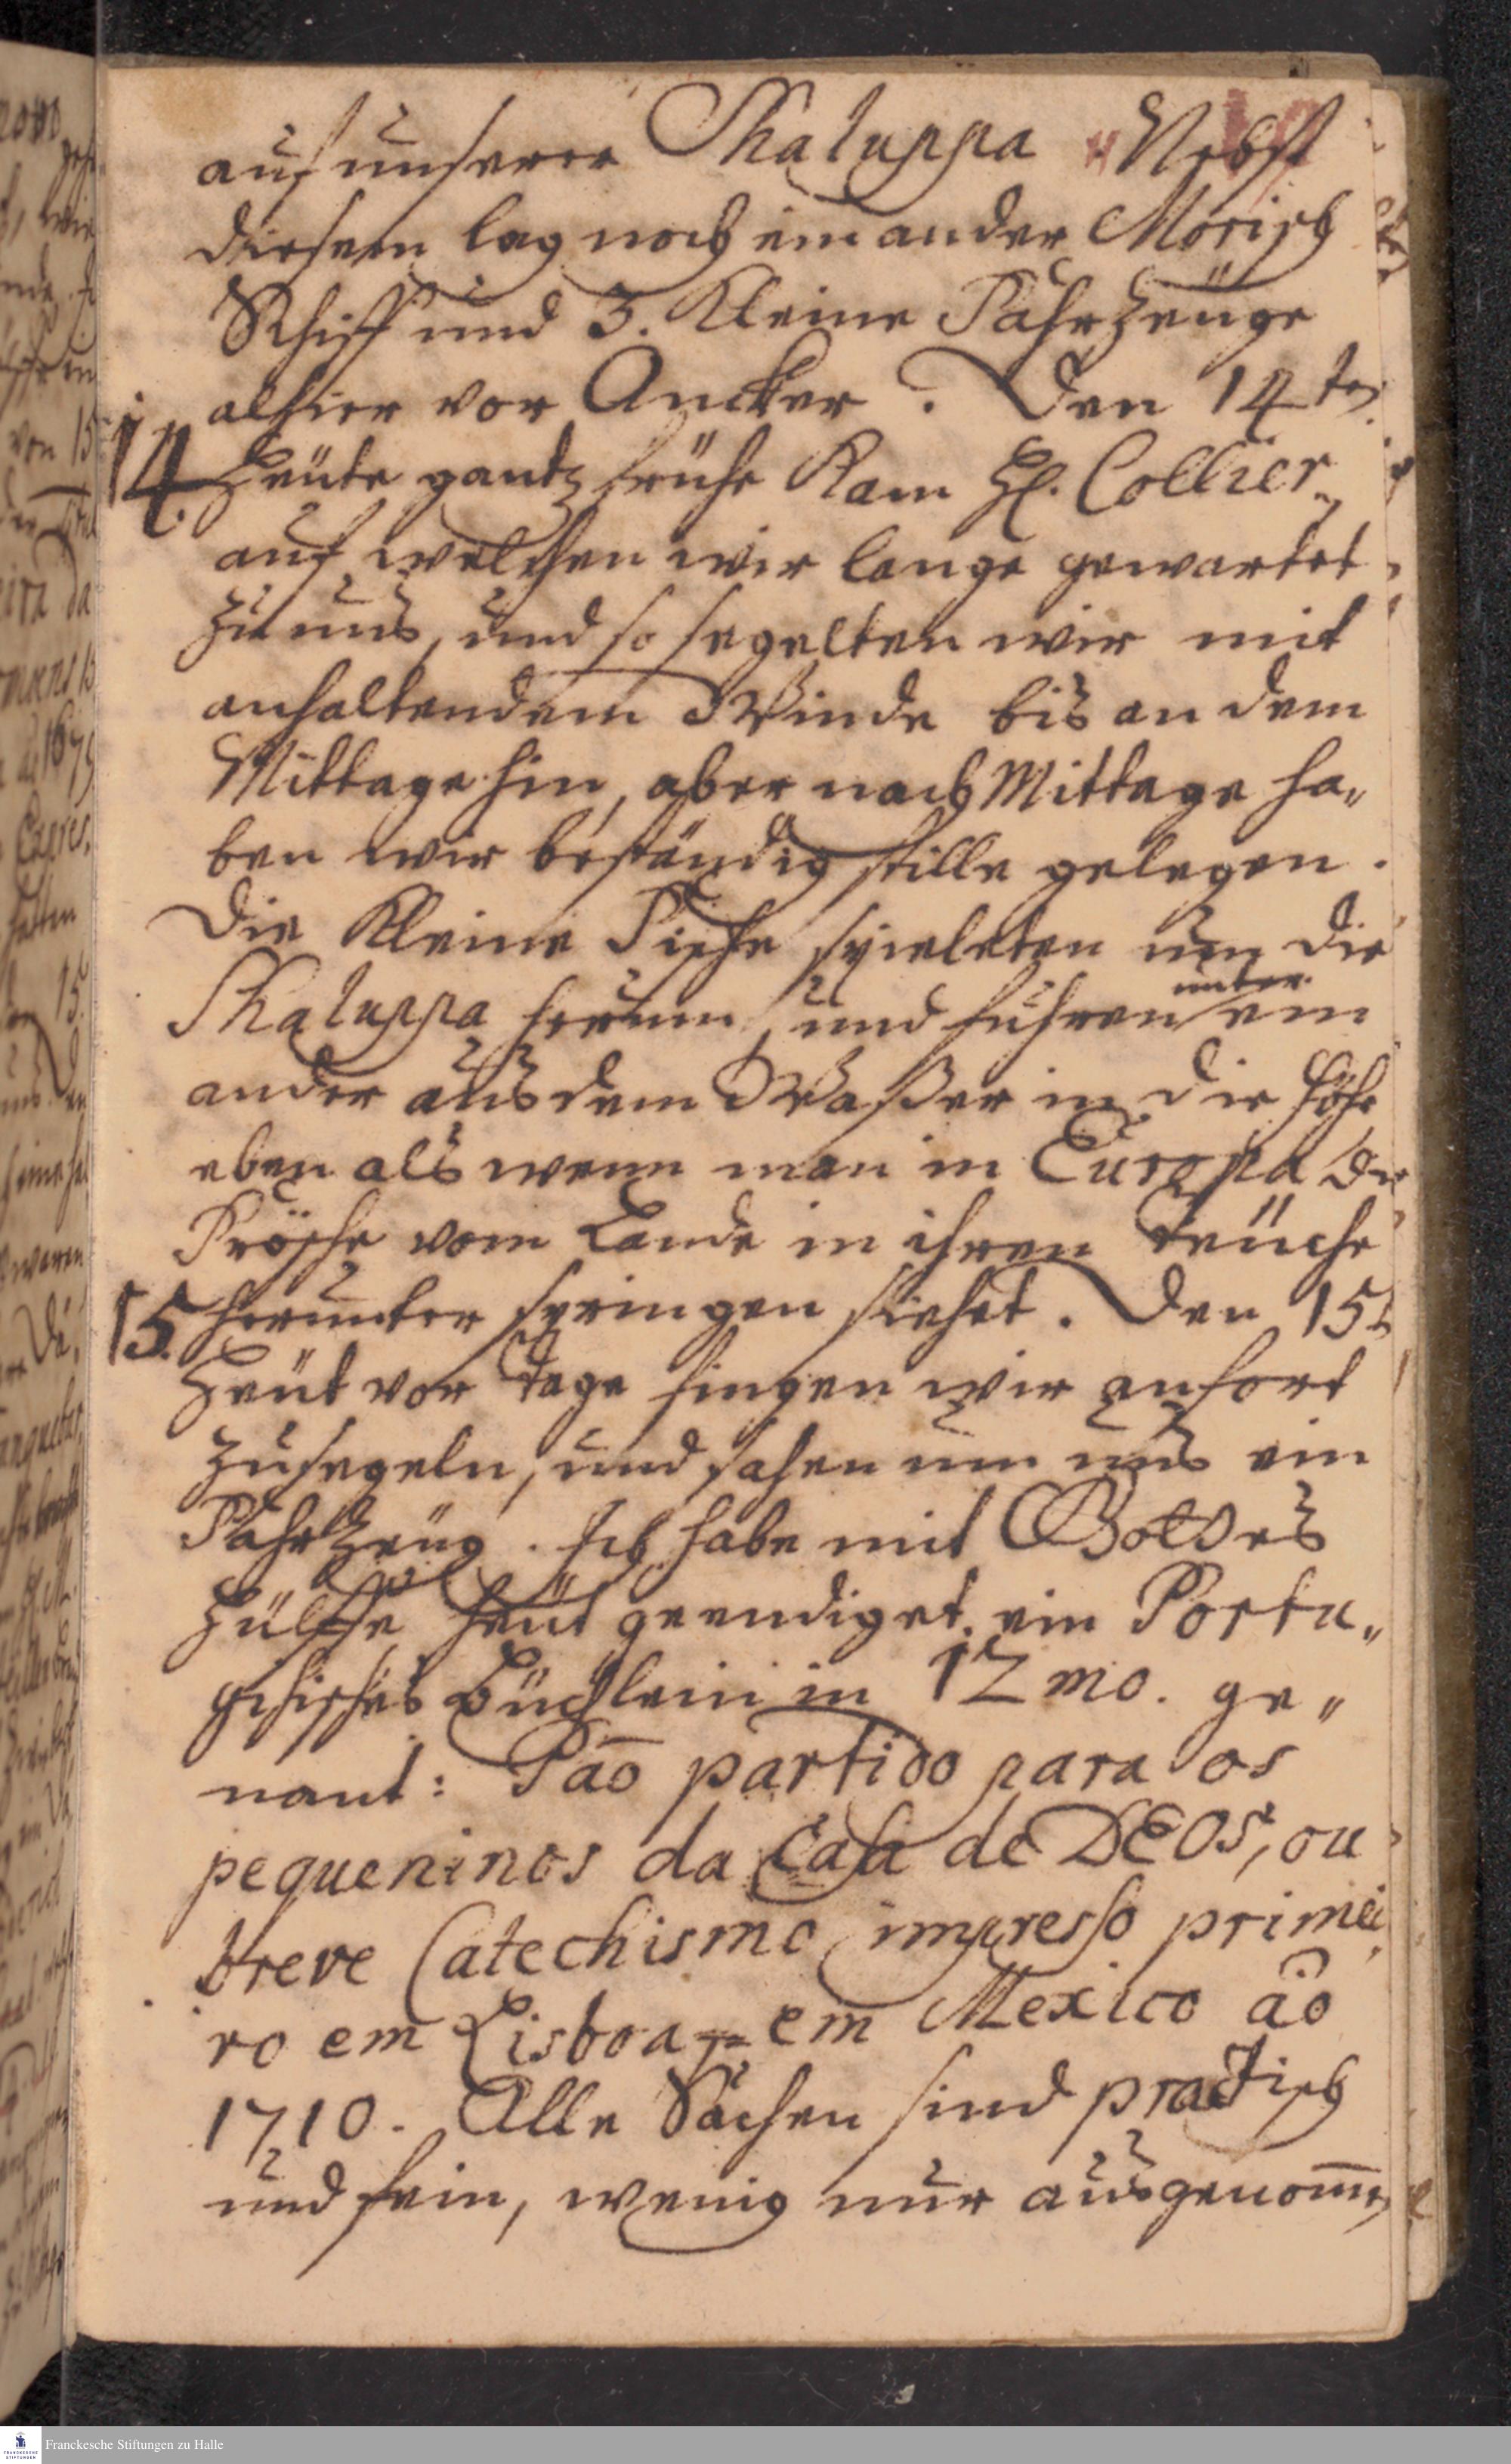 auf unserer Shaluppa Nebst
diesem lag noch ein ander Morisch
Schiff und 3. Kleine Fahrzeuge
alhier vor Ancker. Den 14ten
14. Heute gantz frühe Kam H. Collier,
auf welchen wir lange gewartet
zu uns, und so segelten wir mit
anhaltendem Winde bis an dem
Mittage hin, aber nach Mittage ha„
ben wir beständig stille gelegen.
Die Kleine Fische spieleten um die
Shaluppa herum, und fuhren unter ein
ander aus dem Waßer in die Höhe
eben als wenn man in Europa die
Frösche vom Lande in ihren Teüche
15. herunter springen siehet. Den 15t
Heüt vor Tage fingen wir an fort
zusegeln, und sahen um uns ein
Fahrzeüg. Ich habe mit Gottes
Hülffe heüt geendiget ein Portu„
gisisches Büchlein in 12mo. ge„
nant: Paõ partido para os
pequeninos da Casa de DEOS, ou
breve Catechismo impresso primei
ro em Lisboa = em Mexico aõ
1710. Alle Sachen sind practisch
und fein, wenig nur ausgenom̅en
Franckesche Stiftungen zu Halle